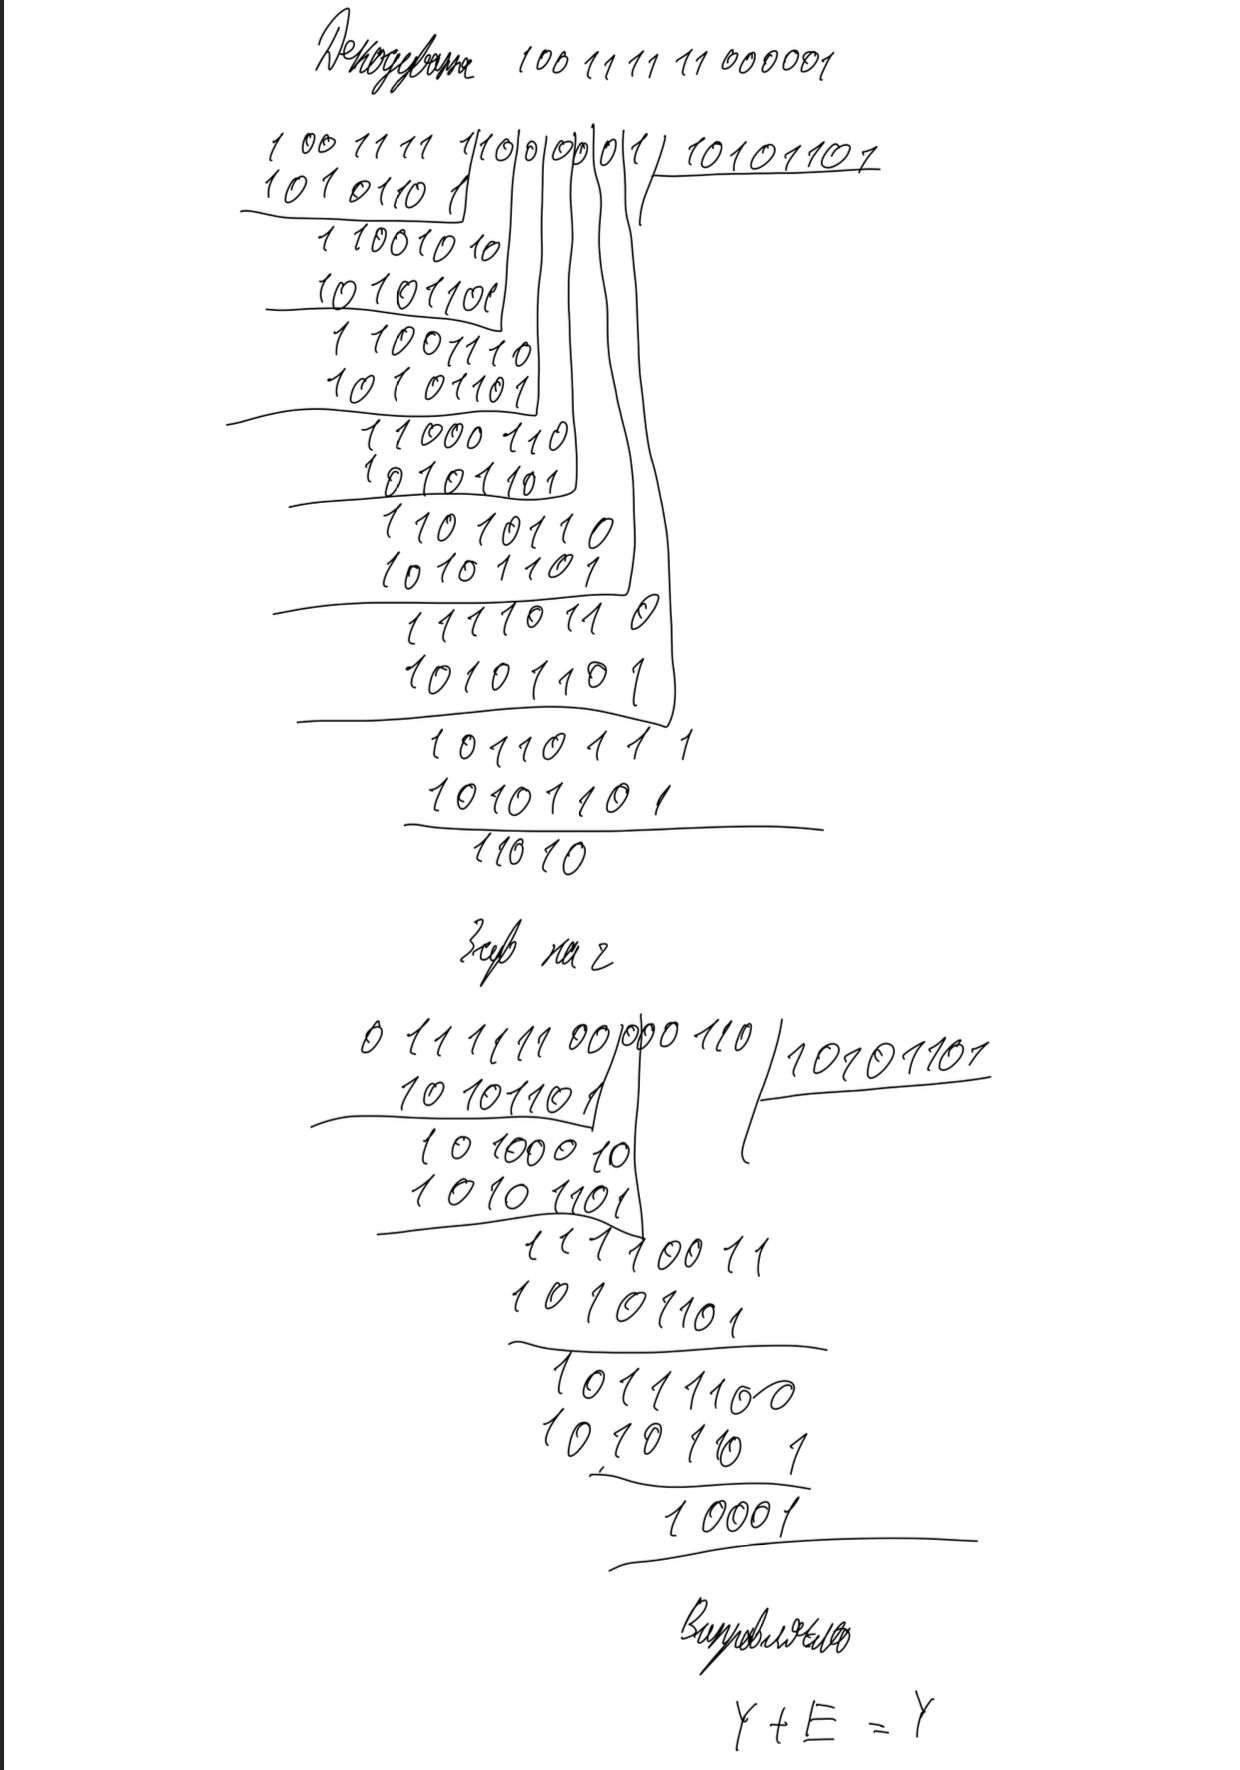 Декодування 100 11 11 11 000001
1 00 11 11 1 10 0 00 0 1 10101101
1010110 1
1 10010 10
10 101101
1 1001110
10 1 01101
11000 110
10101101
110 10110
10 101101
1111011 0
10101101
10110111
10101101
11010
Зсув на 2
0 111111 00 000 110 10101101
10 101101
10 1000 10
1010 1101
11110011
10101101
10111100
1010110 1
10001
Виправляємо
Y + E = Y